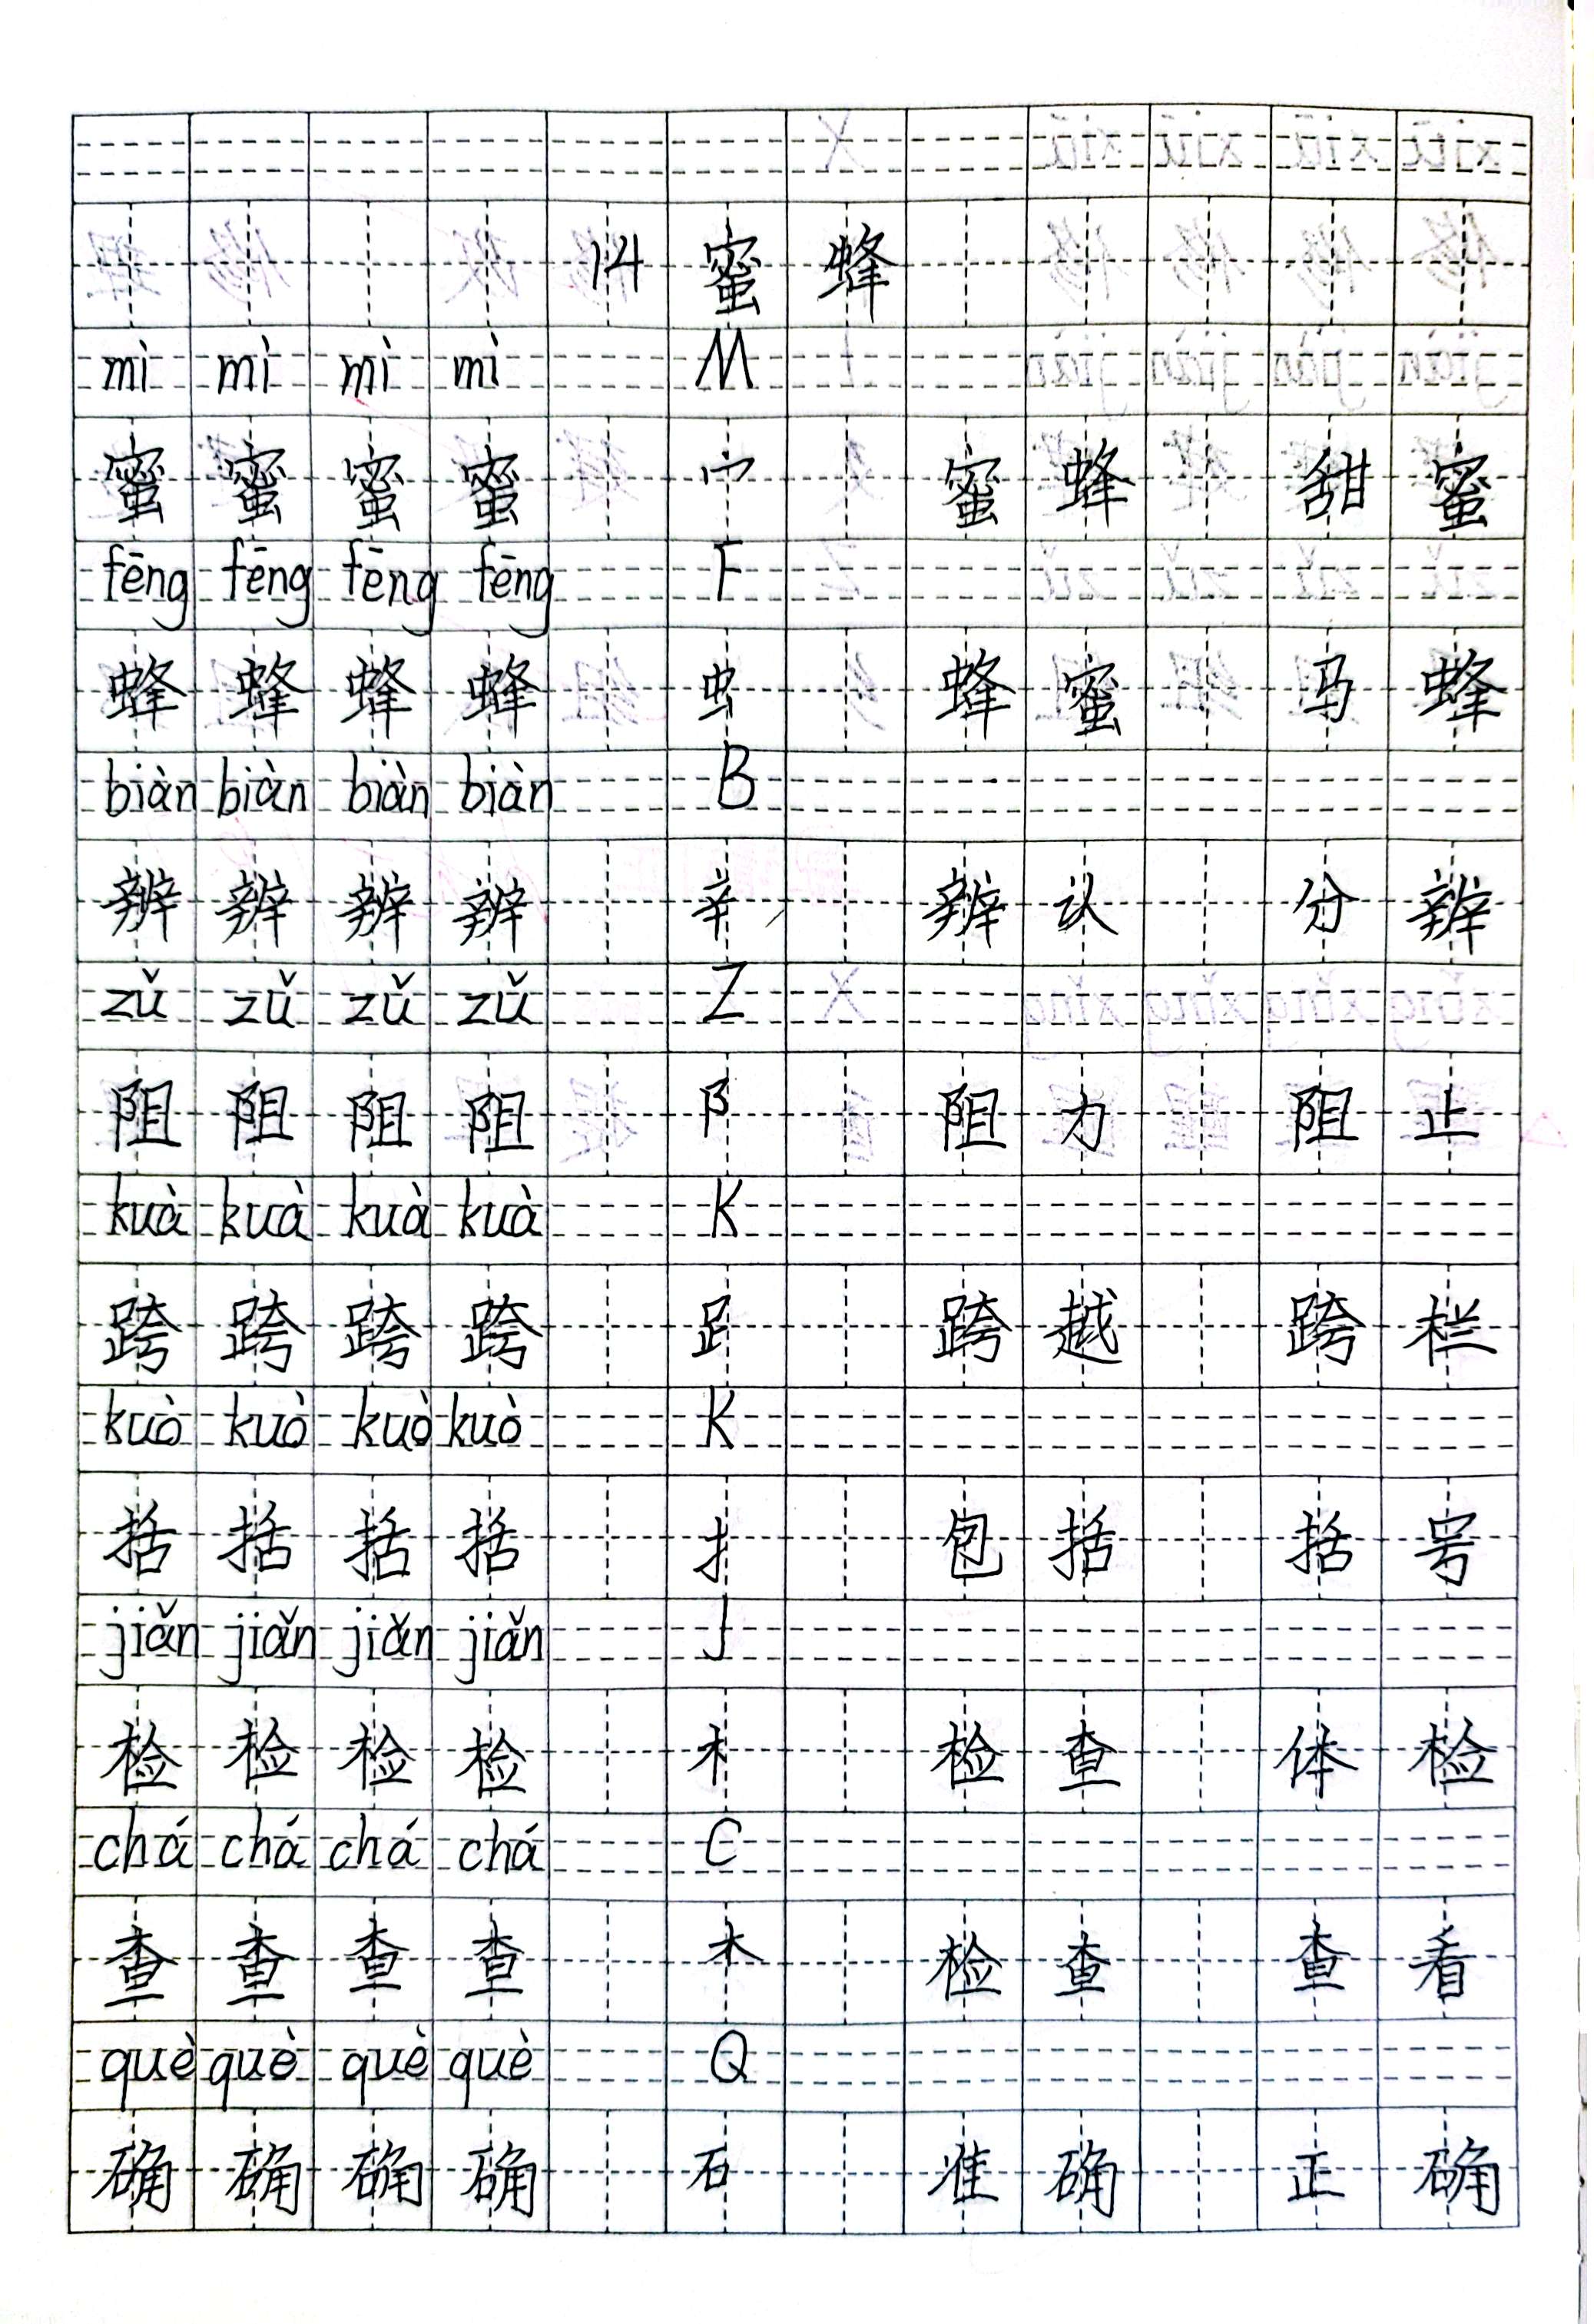 14 蜜 蜂
mì mì mì mì M
蜜 蜜 蜜 蜜 宀 蜜 蜂 甜 蜜
fēng fēng fēng fēng F
蜂 蜂 蜂 蜂 虫 蜂 蜜 马 蜂
biàn biàn biàn biàn B
辨 辨 辨 辨 辛 辨 认 分 辨
zǔ zǔ zǔ zǔ Z
阻 阻 阻 阻 阝 阻 力 阻 止
kuà kuà kuà kuà K
跨 跨 跨 跨 𧾷 跨 越 跨 栏
kuò kuò kuò kuò K
括 括 括 括 扌 包 括 括 号
jiǎn jiǎn jiǎn jiǎn J
检 检 检 检 木 检 查 体 检
chá chá chá chá C
查 查 查 查 木 检 查 查 看
què què què què Q
确 确 确 确 石 准 确 正 确